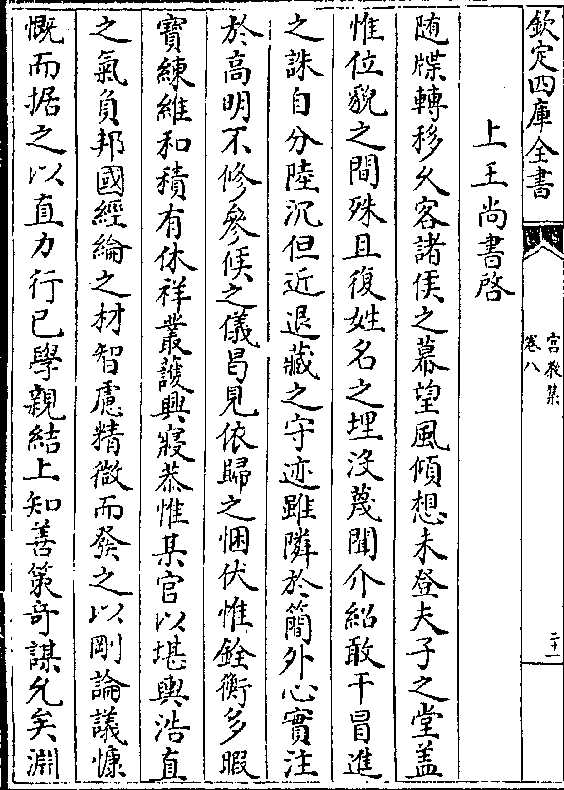 欽定四庫全書
宮教集
卷八
二十一
上王尚書啓
随牒轉移久客諸侯之幕望風傾想未登夫子之堂盖
惟位貌之間殊且復姓名之埋没蔑聞介紹敢干冒進
之誅自分陸沉但近退藏之守迹雖隣於簡外心實注
於高明不修參候之儀曷見依歸之悃伏惟銓衡多暇
寶練維和積有休祥叢䕶興寢恭惟某官以堪輿浩直
之氣負邦國經綸之材智慮精微而發之以剛論議慷
慨而据之以直力行已學親結上知善策奇謀允矣淵